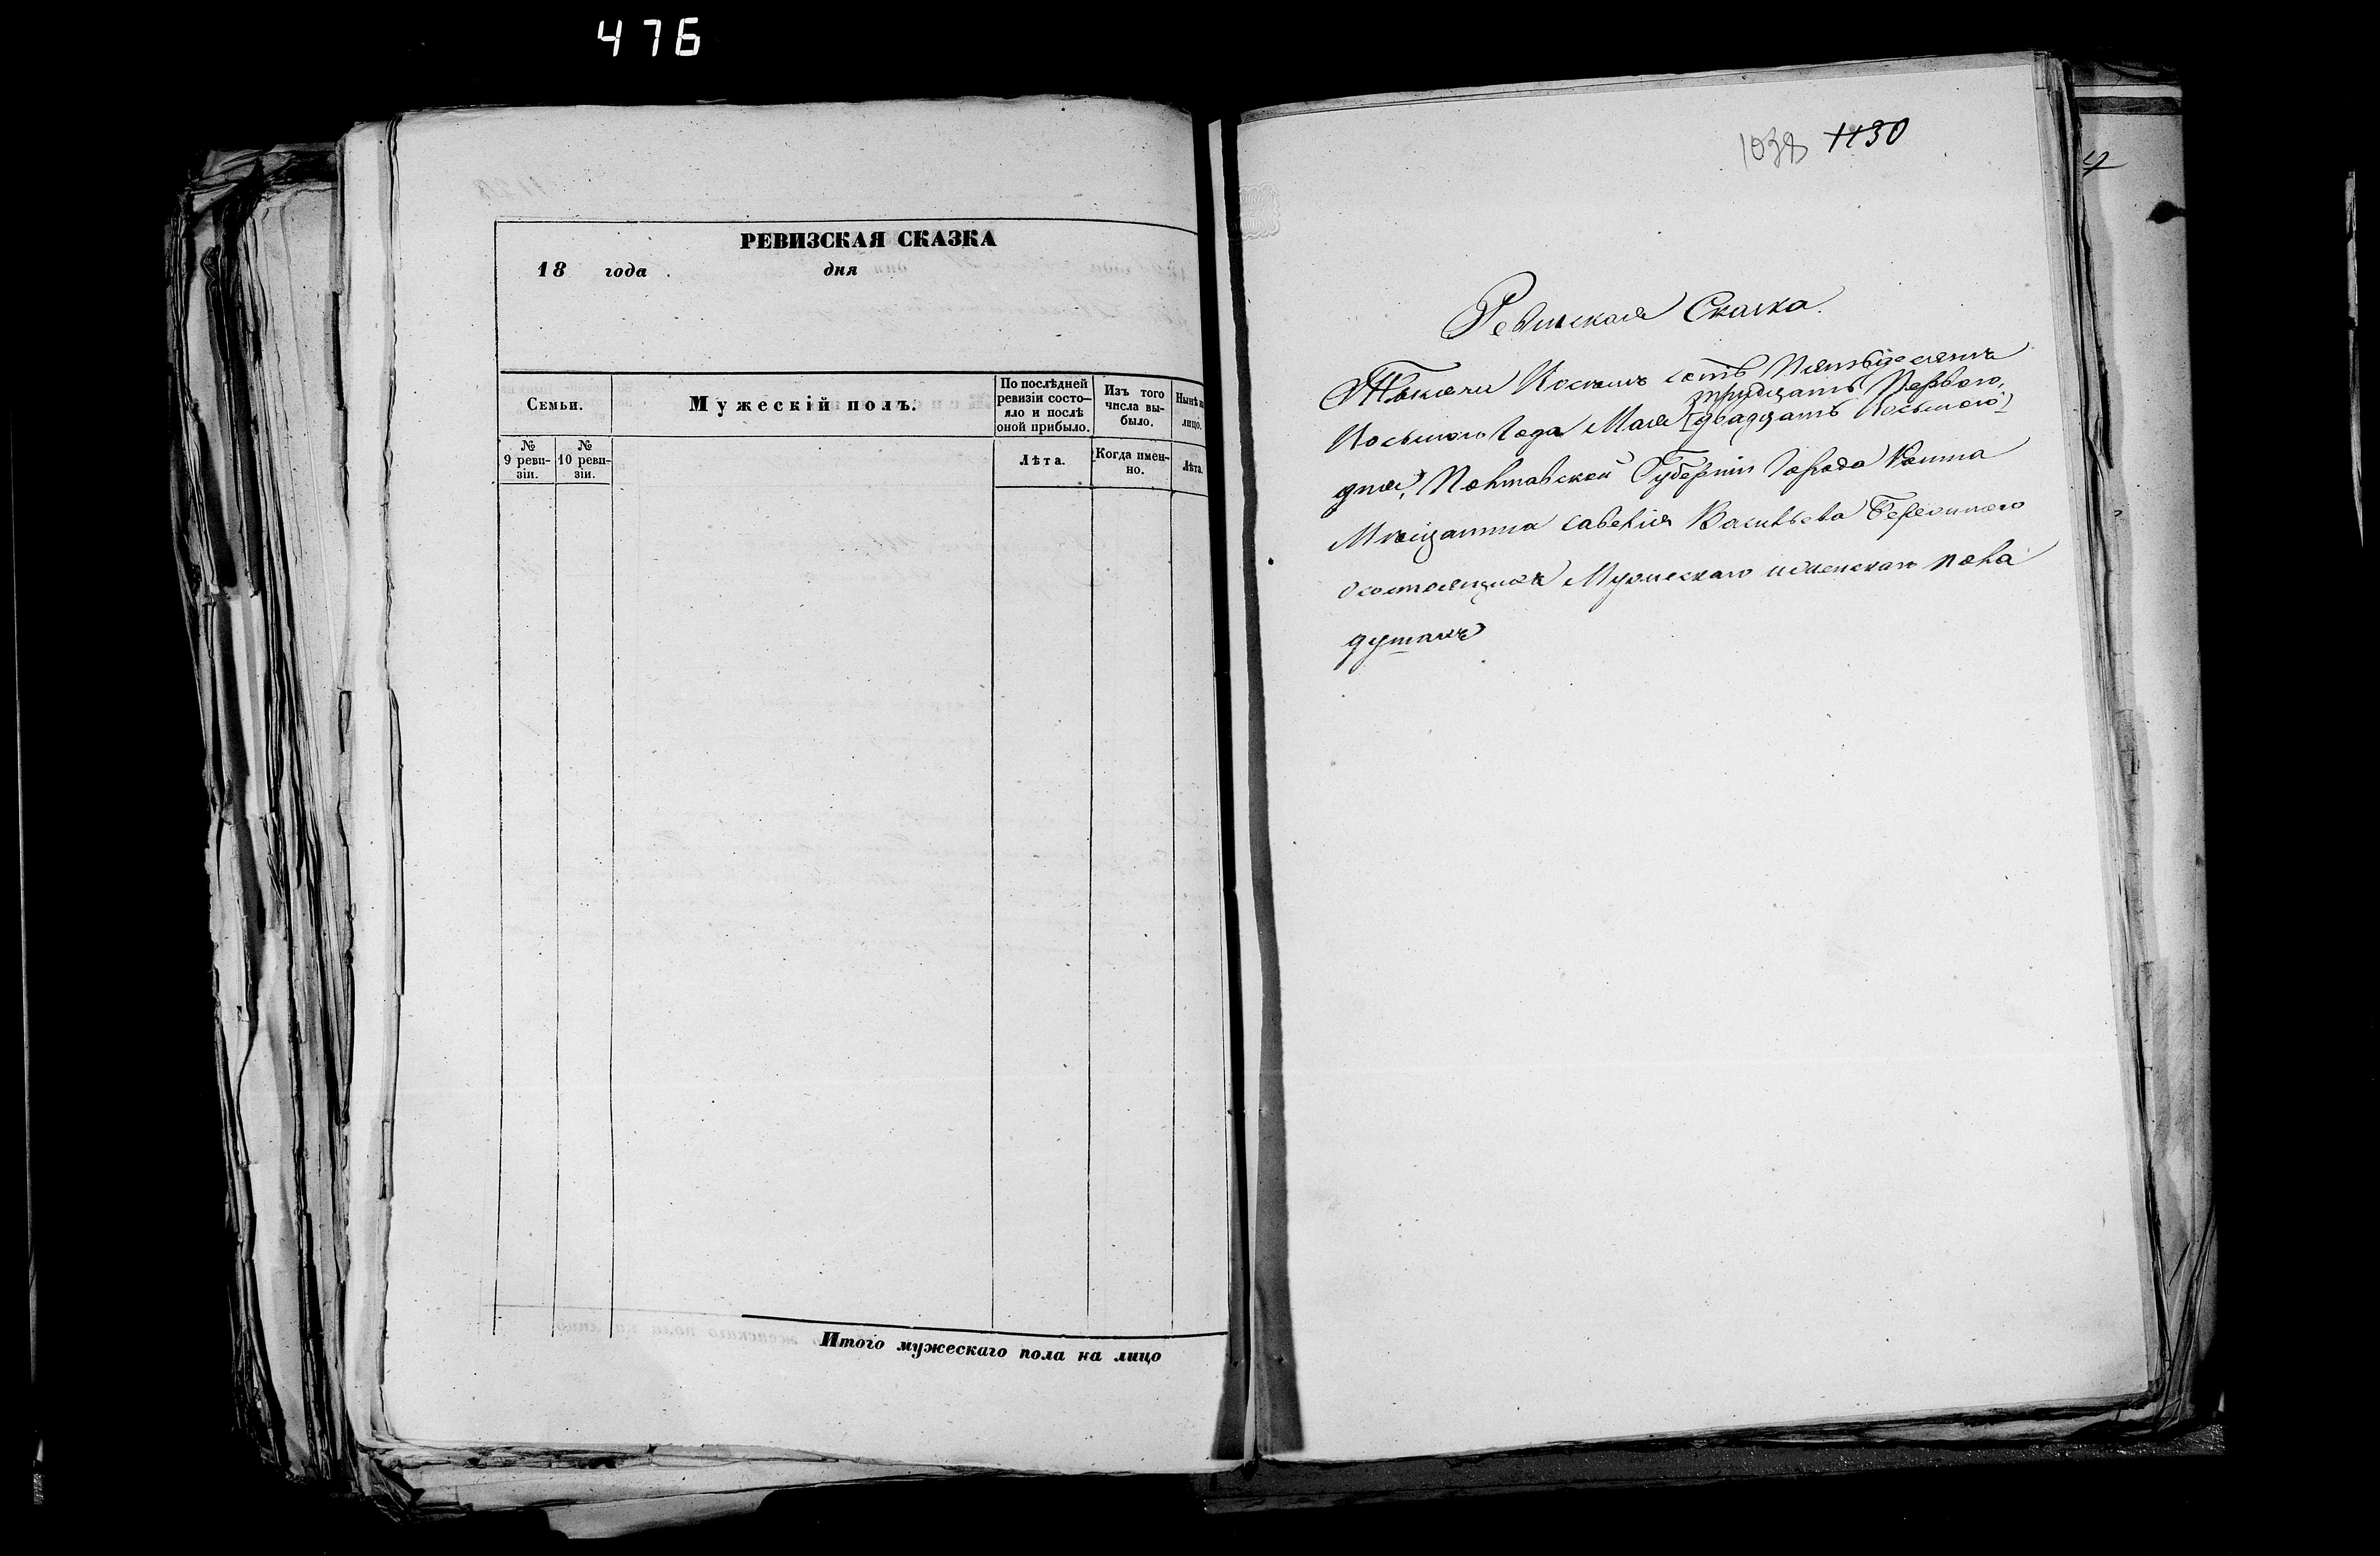 476
РЕВИЗСКАЯ СКАЗКА
18 года дня
Семьи.
Мужескій полъ.
По послѣдней ревизіи состо-яло и послѣ оной прибыло.
Изъ того числа вы-было.
Нынѣ на лицо.
№ 9 реви-зіи.
№ 10 реви-зіи.
Лѣта.
Когда имен-но.
Лѣта.
Итого мужескаго пола на лицо
1038 1130
Ревизская Сказка.
Тысяча Восемь сотъ Пятьдесятъ
тридцать Первого,
Восьмого Года Мая [двадцать Восьмого]
дня, Полтавской Губерніи Города
Мѣщанина Савелія Васильева
О состоящихъ Мужескаго и женскаго пола
душахъ